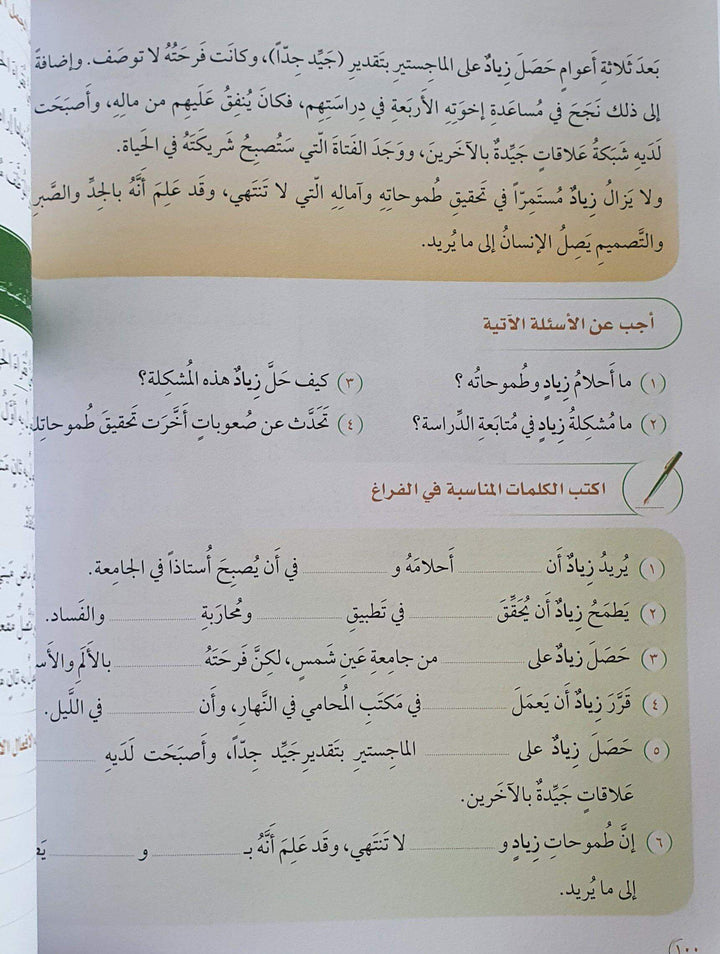 بَعدَ ثَلاثةِ أَعوامٍ حَصَلَ زِيادٌ على الماجستير بتَقدير (جَيِّد جِدّاً)، وكانَت فَرحَتُهُ لا توصَف. وإضافةً
إلى ذلك نَجَحَ في مُساعَدةِ إخوَتِهِ الأَربَعةِ في دِراسَتِهِم، فكانَ يُنفِقُ عَلَيهِم من مالِهِ، وأَصبَحَت
لَدَيهِ شَبَكةُ عَلاقاتٍ جَيِّدةٌ بالآخَرينَ، ووَجَدَ الفَتاةَ الّتي سَتُصبِحُ شَريكَتَهُ في الحَياة.
ولا يَزالُ زِيادٌ مُستَمِرّاً في تَحقيقِ طُموحاتِهِ وآمالِهِ الّتي لا تَنتَهي، وقَد عَلِمَ أَنَّهُ بالجِدِّ والصَّبرِ
والتَّصميمِ يَصِلُ الإنسانُ إلى ما يُريد.
أجب عن الأسئلة الآتية
(١) ما أَحلامُ زِيادٍ وطُموحاتُه ؟
(٢) ما مُشكِلةُ زِيادٍ في مُتابَعةِ الدِّراسة؟
(٣) كيف حَلَّ زِيادٌ هذه المُشكِلة؟
(٤) تَحَدَّث عن صُعوباتٍ أَخَّرَت تَحقيقَ طُموحاتِهِ
اكتب الكلمات المناسبة في الفراغ
(١) يُريدُ زِيادٌ أَن ........ أَحلامَهُ و ........ في أَن يُصبِحَ أُستاذاً في الجامِعة.
(٢) يَطمَحُ زِيادٌ أَن يُحَقِّقَ ........ في تَطبيقِ ........ ومُحارَبةِ ........ والفَساد.
(٣) حَصَلَ زِيادٌ على ........ من جامِعةِ عَينِ شَمسٍ، لكِنَّ فَرحَتَهُ ........ بالأَلَمِ
(٤) قَرَّرَ زِيادٌ أَن يَعمَلَ ........ في مَكتَبِ المُحامي في النَّهارِ، وأَن ........ في اللَّيل.
(٥) حَصَلَ زِيادٌ على ........ الماجِستيرِ بتَقديرِ جَيِّد جِدّاً، وأَصبَحَت لَدَيهِ ........
عَلاقاتٍ جَيِّدةٌ بالآخَرين.
(٦) إنَّ طُموحاتِ زِيادٍ و ........ لا تَنتَهي، وقَد عَلِمَ أَنَّهُ بـ ........ و ........
إلى ما يُريد.
١٠٠